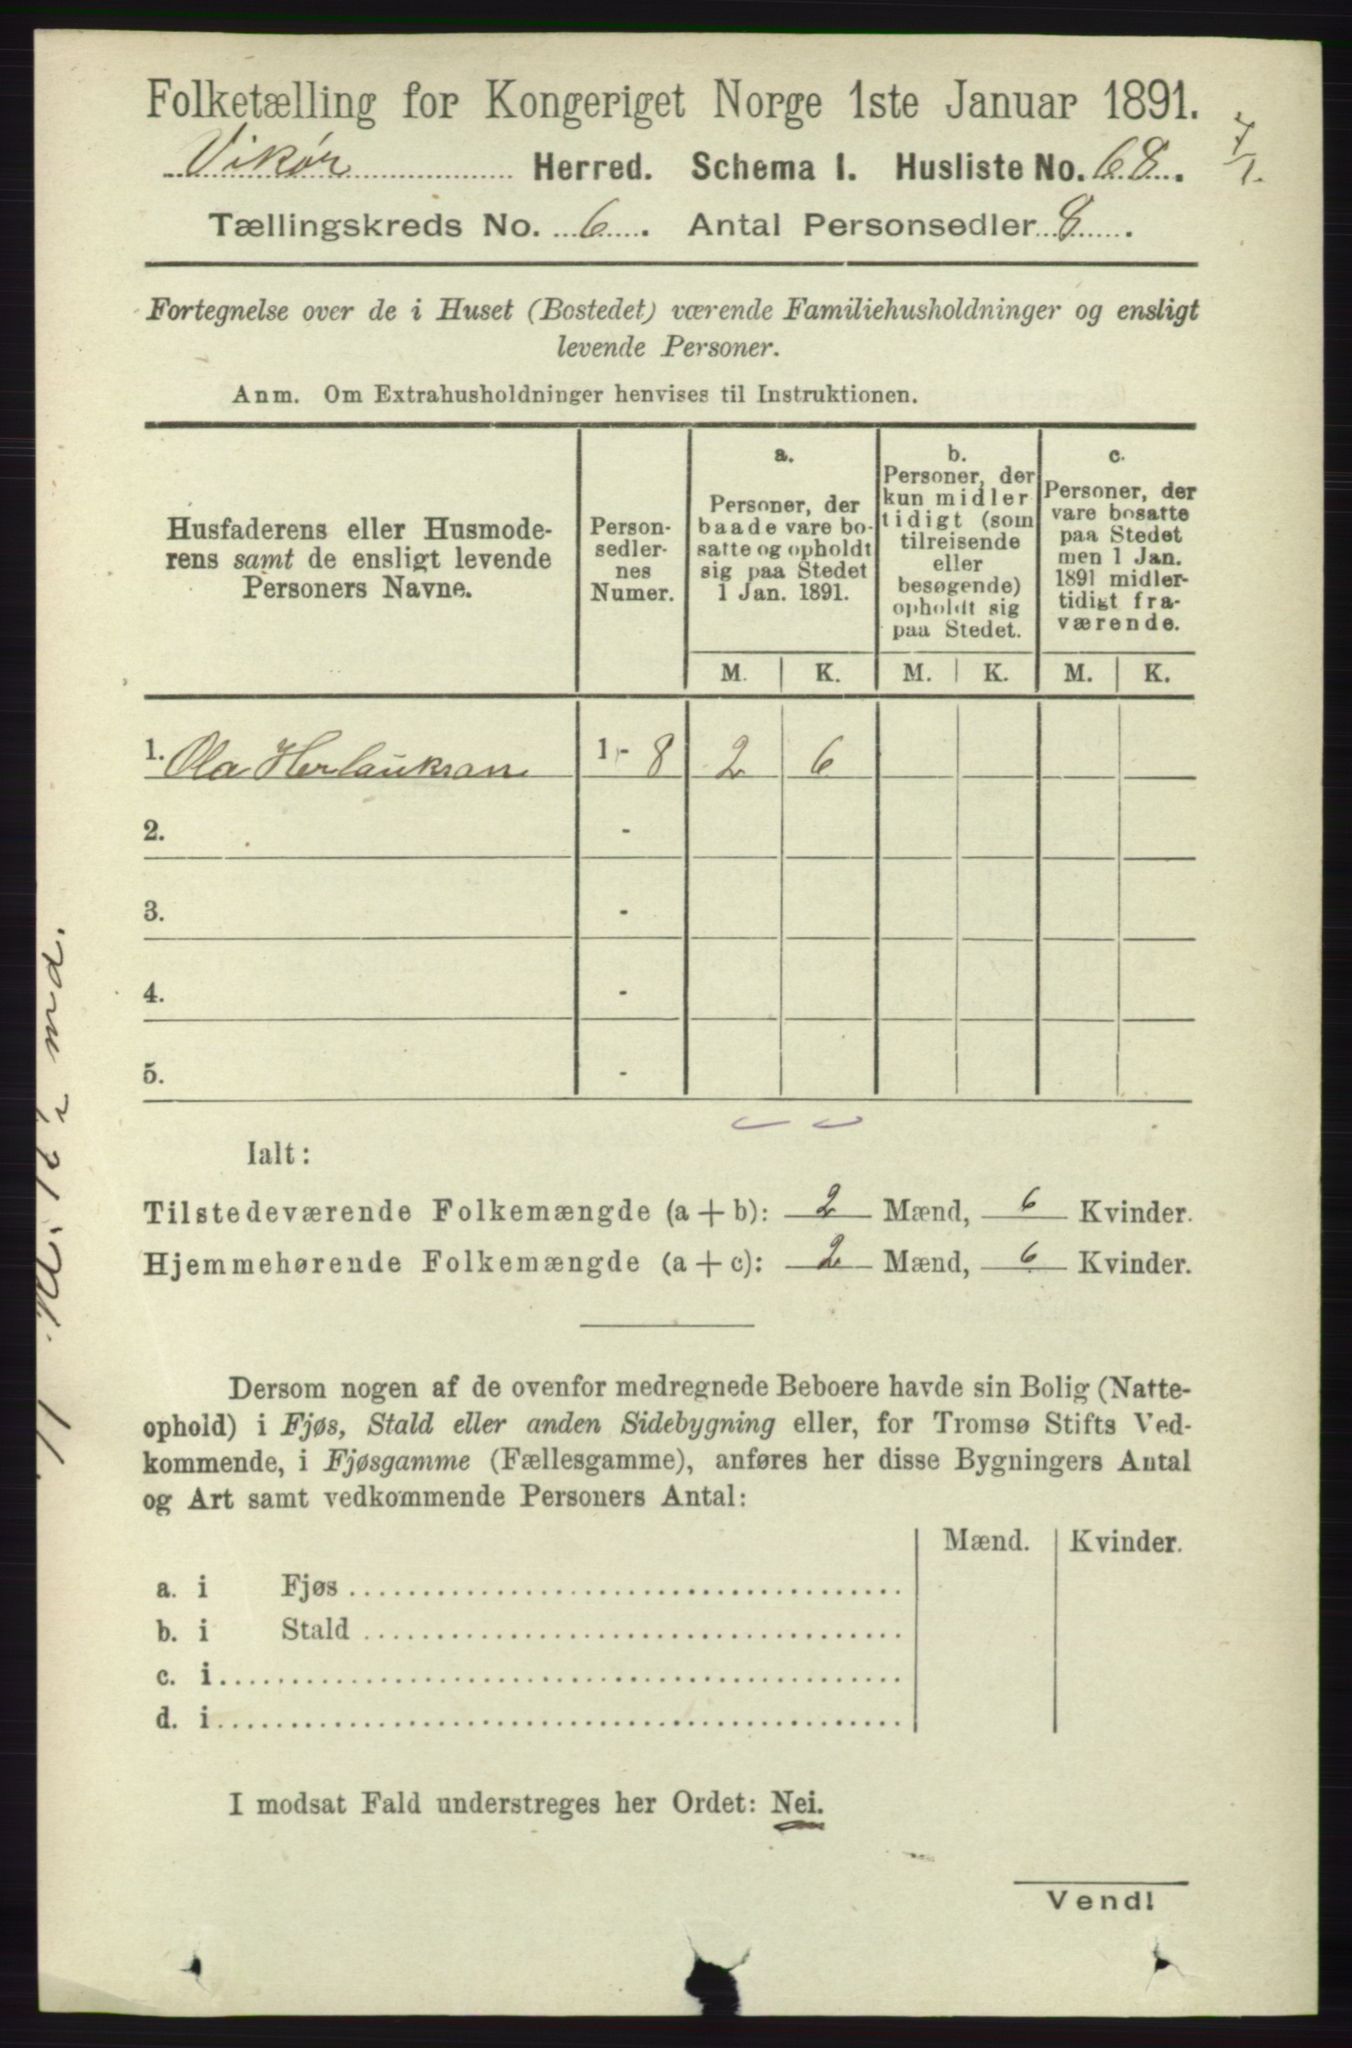 Folketælling for Kongeriget Norge 1ste Januar 1891.
7/1.
Vikør Herred. Schema I. Husliste No. 68.
Tællingskreds No. 6. Antal Personsedler 8.
Fortegnelse over de i Huset (Bostedet) værende Familiehusholdninger og ensligt
levende Personer.
Anm. Om Extrahusholdninger henvises til Instruktionen.
Husfaderens eller Husmode-
rens samt de ensligt levende
Personers Navne.
Person-
sedler-
nes
Numer.
a.
Personer, der
baade vare bo-
satte og opholdt
sig paa Stedet
1 Jan. 1891.
b.
Personer, der
kun midler
tidigt (som
tilreisende
eller
besøgende)
opholdt sig
paa Stedet.
c.
Personer, der
vare bosatte
paa Stedet
men 1 Jan.
1891 midler-
tidigt fra-
værende.
M. K. M. K. M. K.
1. Ola Herlaukson 1 - 8 2 6
2. -
3. -
4. -
5. -
Ialt:
Tilstedeværende Folkemængde (a + b): 2 Mænd, 6 Kvinder.
Hjemmehørende Folkemængde (a + c): 2 Mænd, 6 Kvinder.
Dersom nogen af de ovenfor medregnede Beboere havde sin Bolig (Natte-
ophold) i Fjøs, Stald eller anden Sidebygning eller, for Tromsø Stifts Ved-
kommende, i Fjøsgamme (Fællesgamme), anføres her disse Bygningers Antal
og Art samt vedkommende Personers Antal:
Mænd. Kvinder.
a. i Fjøs
b. i Stald
c. i
d. i
I modsat Fald understreges her Ordet: Nei.
Vend!